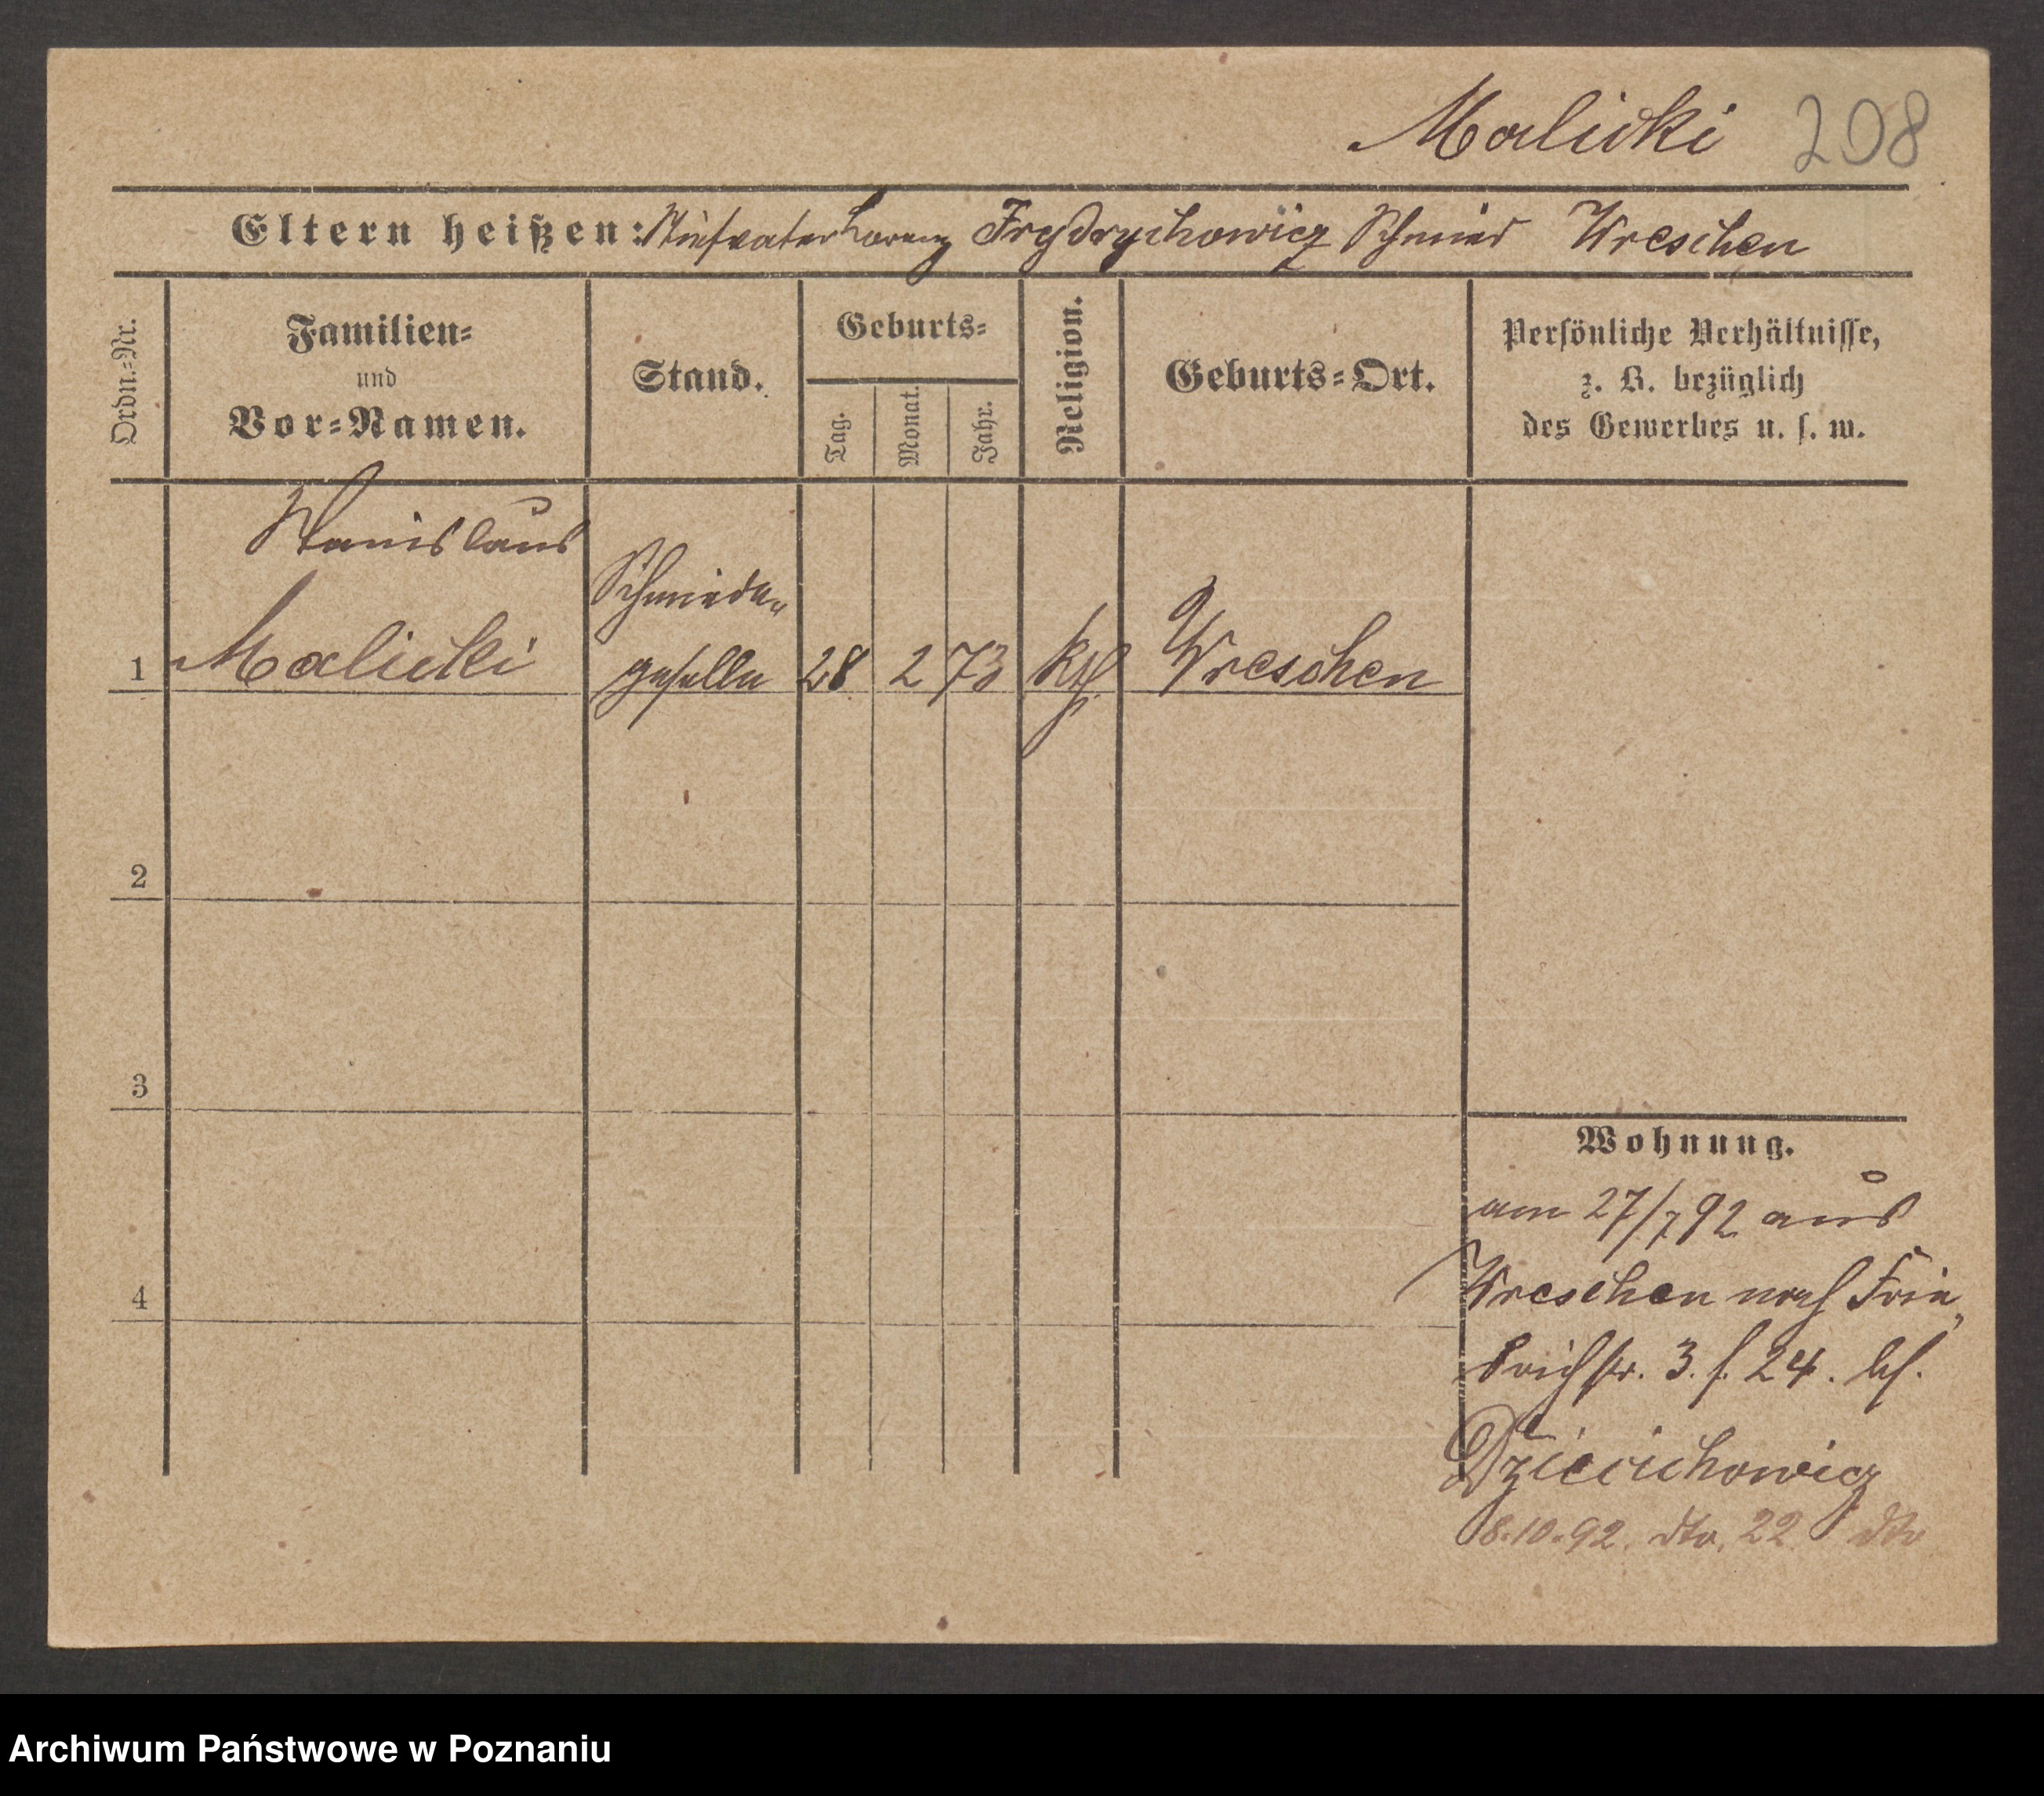 Malicki 208
Eltern heißen: Stiefvater Lorenz Frydrychowicz Schmied Wreschen
Ordn.-Nr.
Familien-
und
Vor-Namen.
Stand.
Geburts-
Tag.
Monat.
Jahr.
Religion.
Geburts-Ort.
Persönliche Verhältnisse,
z. B. bezüglich
des Gewerbes u. s. w.
Stanislaus
Schmiede-
1 Malicki geselle 28 2 73 kth Wreschen
2
3
4
Wohnung.
am 27/7 92 aus
Wreschen nach Frie-
drichstr. 3. f. 24. bei
8.10.92. dto. 22 dto
Archiwum Państwowe w Poznaniu